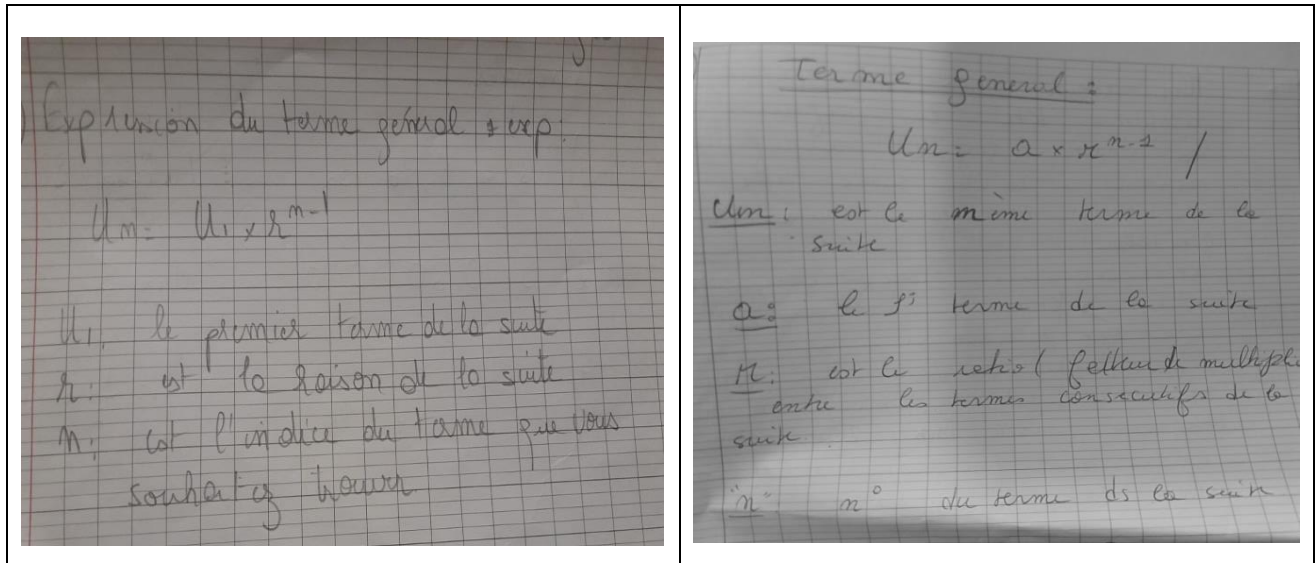 Expression du terme général exp:
Un = U₁ × r^n-1
U₁: le premier terme de la suite
r: est la raison de la suite
n: est l'indice du terme que vous
souhaitez trouver
Terme general :
Un = a × r^n-1 /
Un : est le même terme de la
suite
a : le terme de la suite
r : est le ratio ( de multipl
entre les termes consécutifs de la
suite
"n" : n° du terme ds la suite